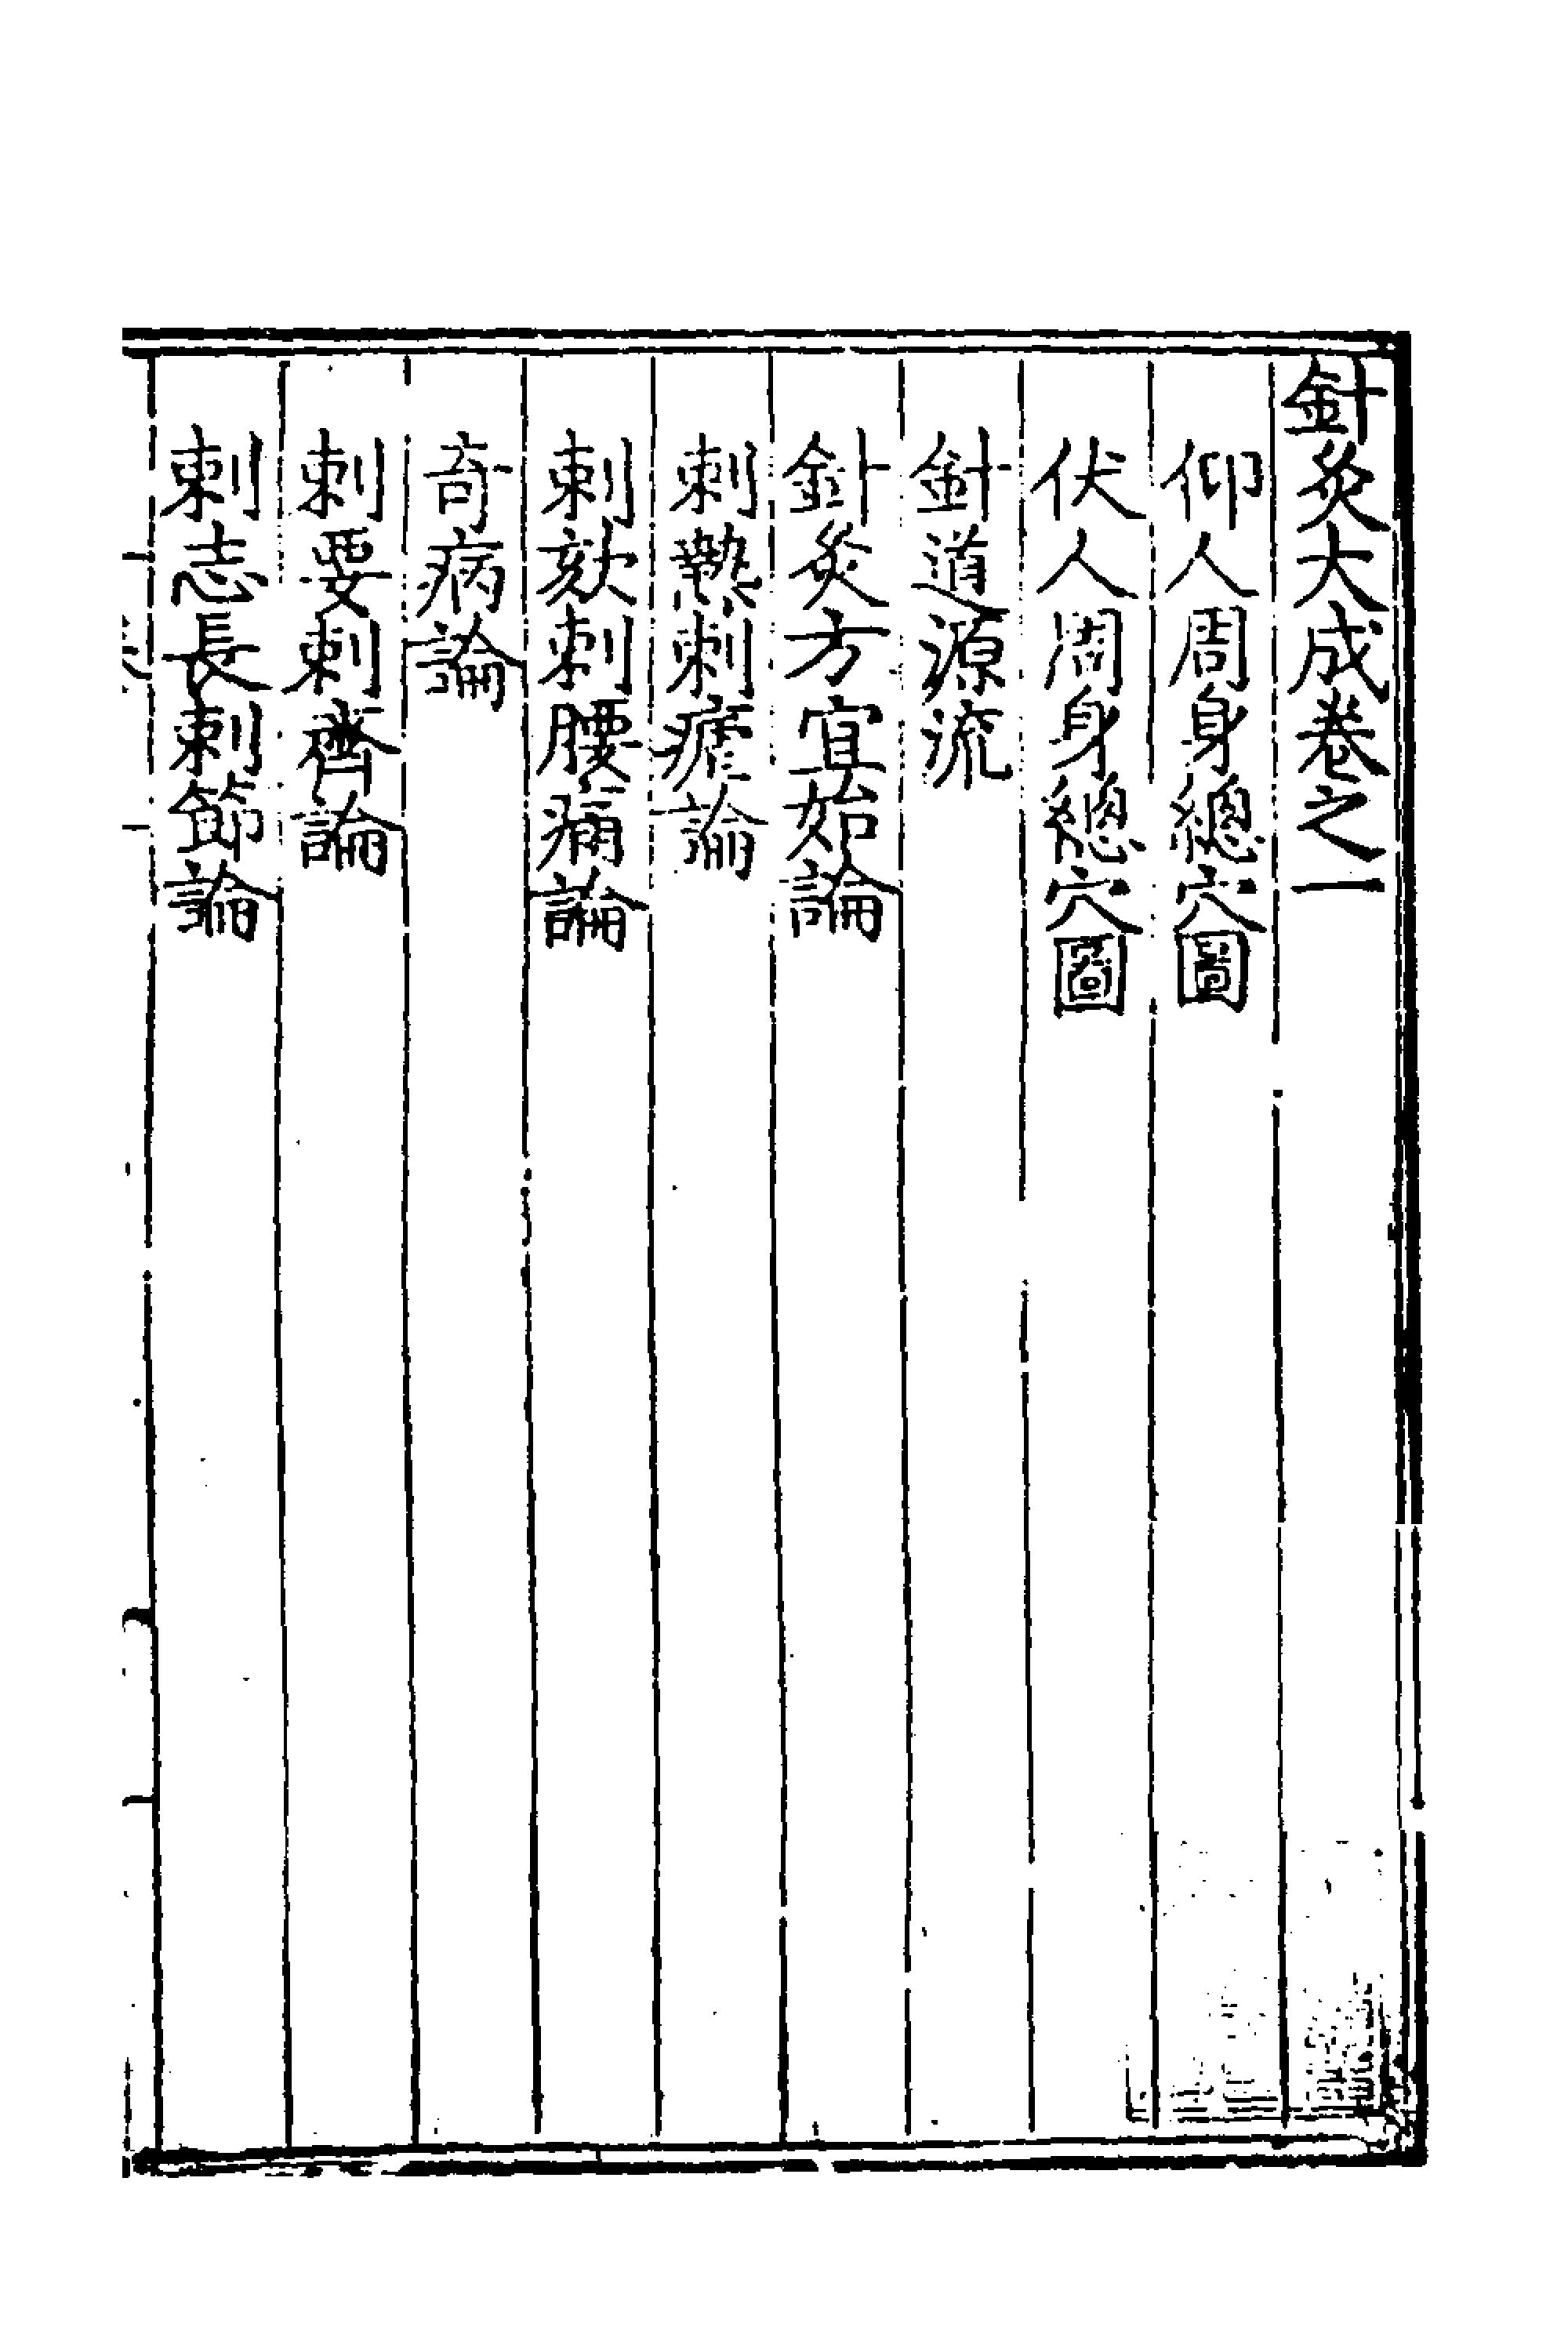 針灸大成卷之一
仰人周身總穴圖
伏人周身總穴圖
針道源流
針灸方宜始論
刺熱刺瘧論
刺欬刺腰痛論
奇病論
刺要刺齊論
刺志長刺節論